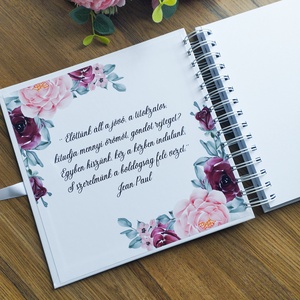 - Előttünk áll a jövő, a titokzatos,
kitudja mennyi örömöt, gondot rejteget?
Egyben hiszünk, kéz a kézben indulunk,
S szerelmünk a boldogság felé vezet.-
Jean Paul